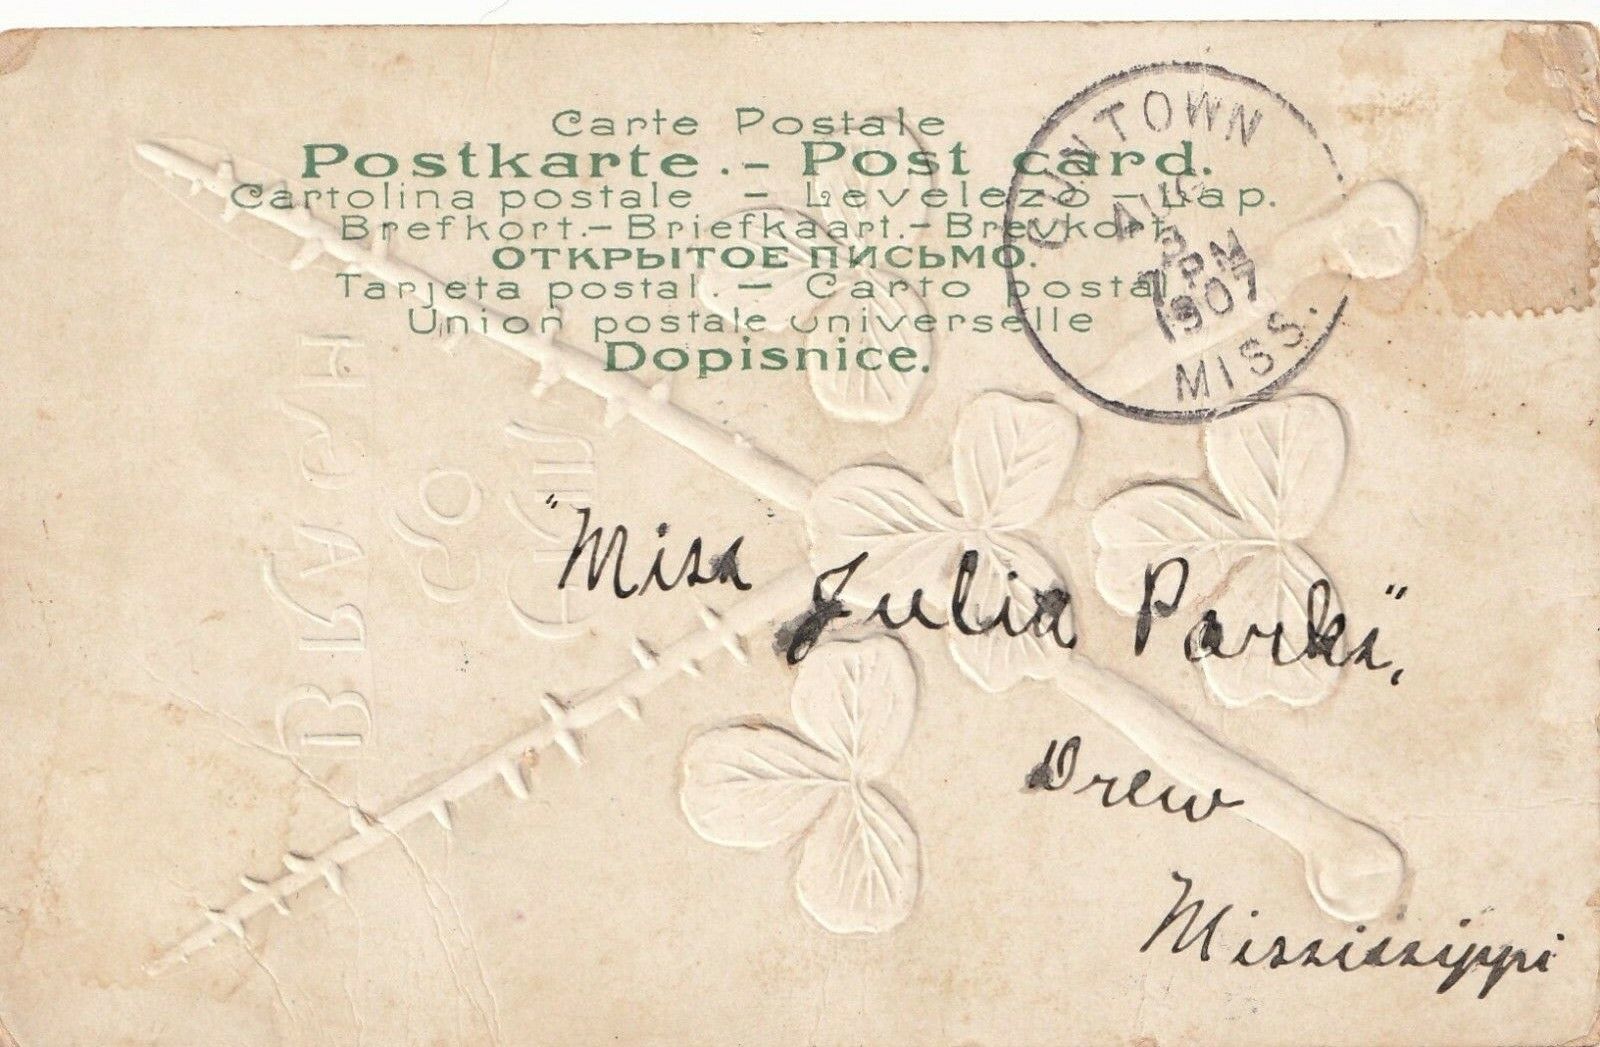 Carte Postale
Postkarte.- Post card.
Cartolina postale - Levelező - Lap.
Brefkort.- Briefkaart.- Brevkort.
ОТКРЫТОЕ ПИСЬМО.
Tarjeta postal. - Carto postal
Union postale universelle
Dopisnice.
GUNTOWN
AUG
3 PM
1907
MISS.
"Miss Julia Parks",
Drew
Mississippi
ERIN
GO
BRAGH